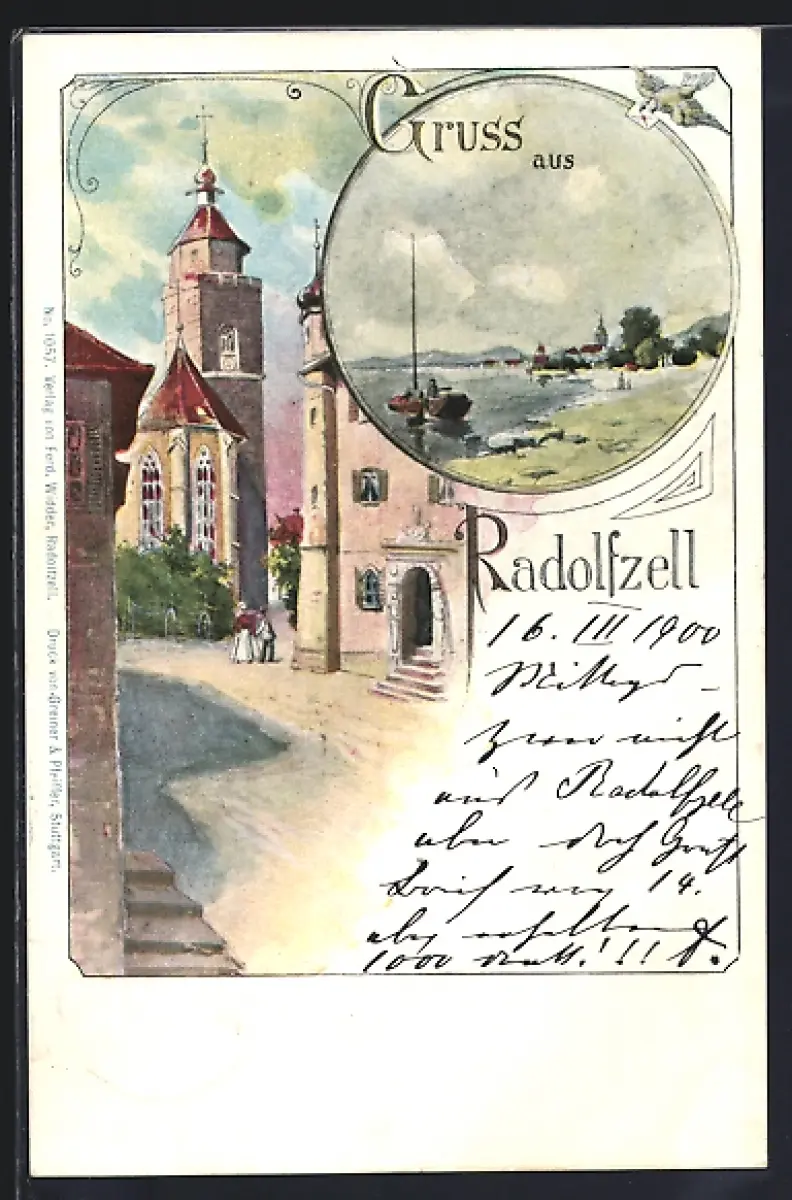 Gruss
aus
Radolfzell
16. III 1900
Mittags –
Zwar nicht
aus Radolfzell
aber doch Gruß
Brief 14.
erhalten
1000 Dank!!!
No. 1057. Verlag von Ferd. Widder, Radolfzell. Druck von Greiner & Pfeiffer, Stuttgart.